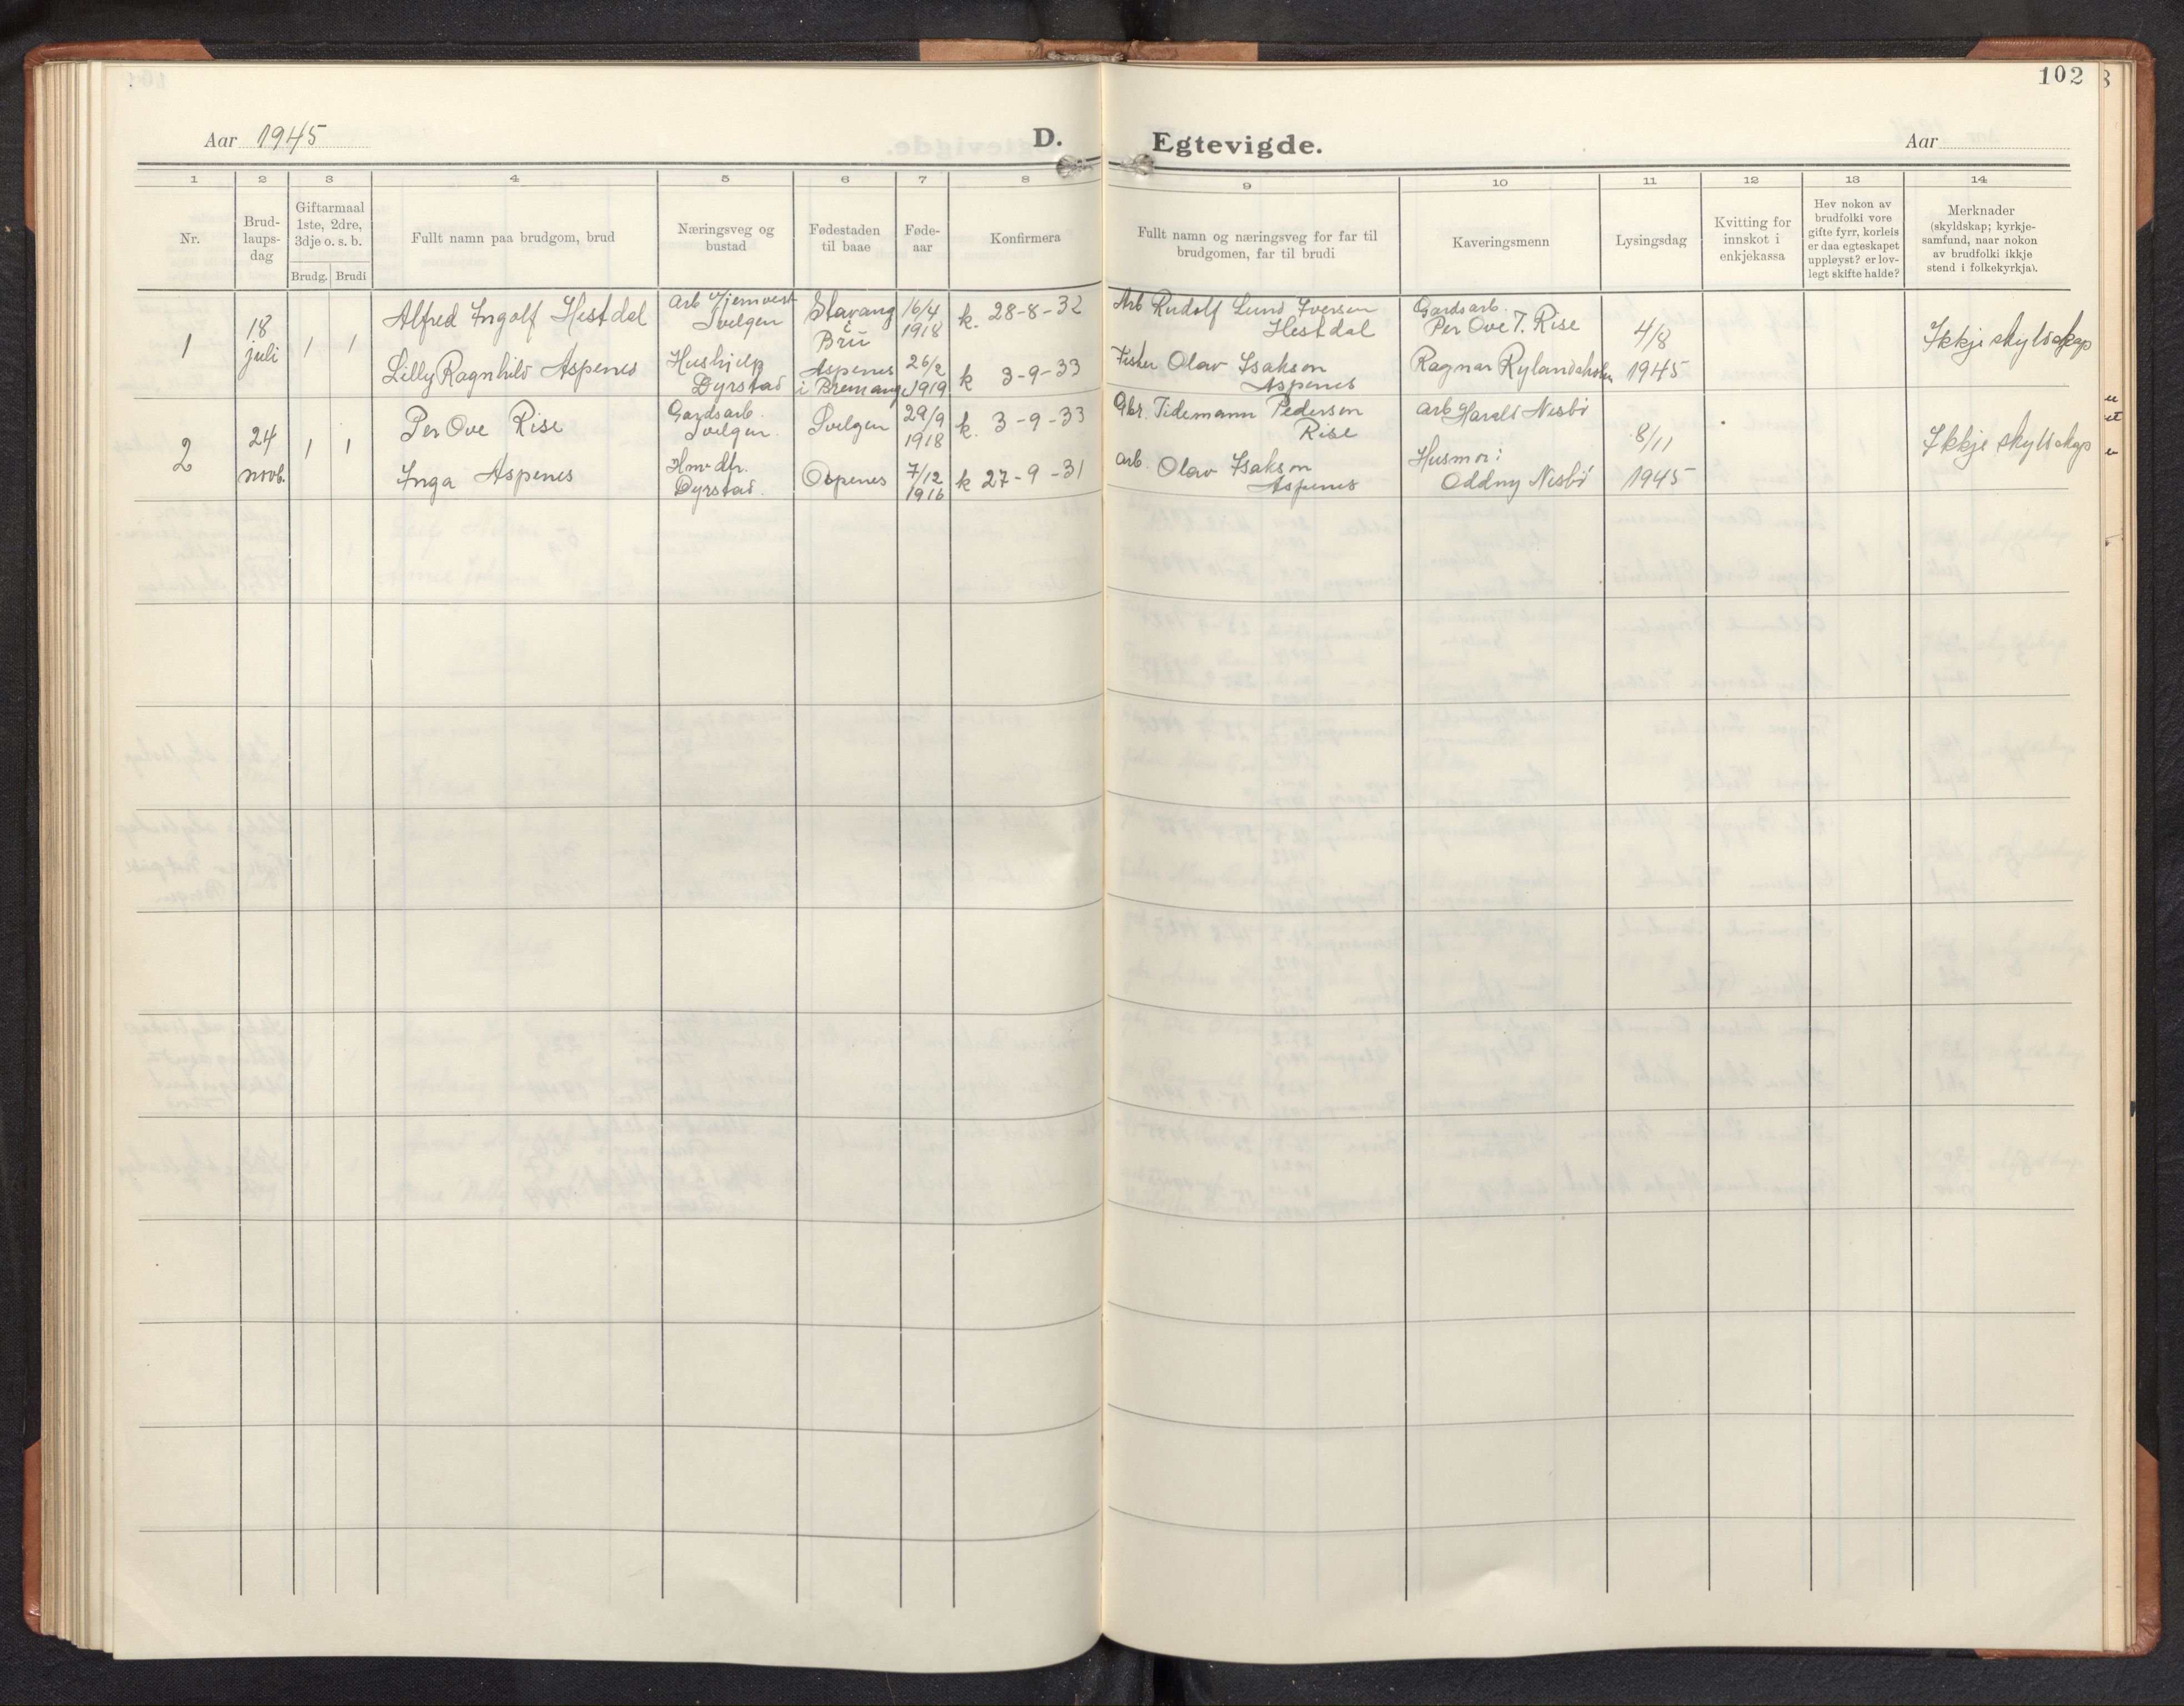 102
Aar 1945
D. Egtevigde.
Aar
1 2 3 4 5 6 7 8 9 10 11 12 13 14
Nr.
Brud-
laups-
dag
Giftarmaal
1ste, 2dre,
3dje o. s. b.
Brudg. Brudi
Fullt namn paa brudgom, brud
Næringsveg og
bustad
Fødestaden
til baae
Føde-
aar
Konfirmera
Fullt namn og næringsveg for far til
brudgomen, far til brudi
Kaveringsmenn
Lysingsdag
Kvitting for
innskot i
enkjekassa
Hev nokon av
brudfolki vore
gifte fyrr, korleis
er daa egteskapet
uppløyst? er lov-
legt skifte halde?
Merknader
(skyldskap; kyrkje-
samfund, naar nokon
av brudfolki ikkje
stend i folkekyrkja).
1
18
juli
1 1
Alfred Ingolf Hestdal
Arb
Svelgen
Stavang
i
Bru
16/4
1918
k. 28-8-32
Arb Rudolf Lund Iversen
Hestdal
Gardsarb.
Per Ove T. Rise
4/8
Ikkje skyldskap
Lilly Ragnhild Aspenes
Hushjelp
Dyrstad
Aspenes
i Bremang
26/2
1919
k 3-9-33
Fisker Olav Isakson
Aspenes
Ragnar Rylandsholm
1945
2
24
novb.
1 1
Per Ove Rise
Gardsarb.
Svelgen
Svelgen
29/9
1918
k. 3-9-33
Gbr. Tidemann Pedersen
Rise
Arb Harald Nesbø
8/11
Ikkje skyldskap
Inga Aspenes
Hmv dtr.
Dyrstad.
Ospenes
7/12
1916
k 27-9-31
arb. Olav Isakson
Aspenes
Husmor:
Oddny Nesbø
1945